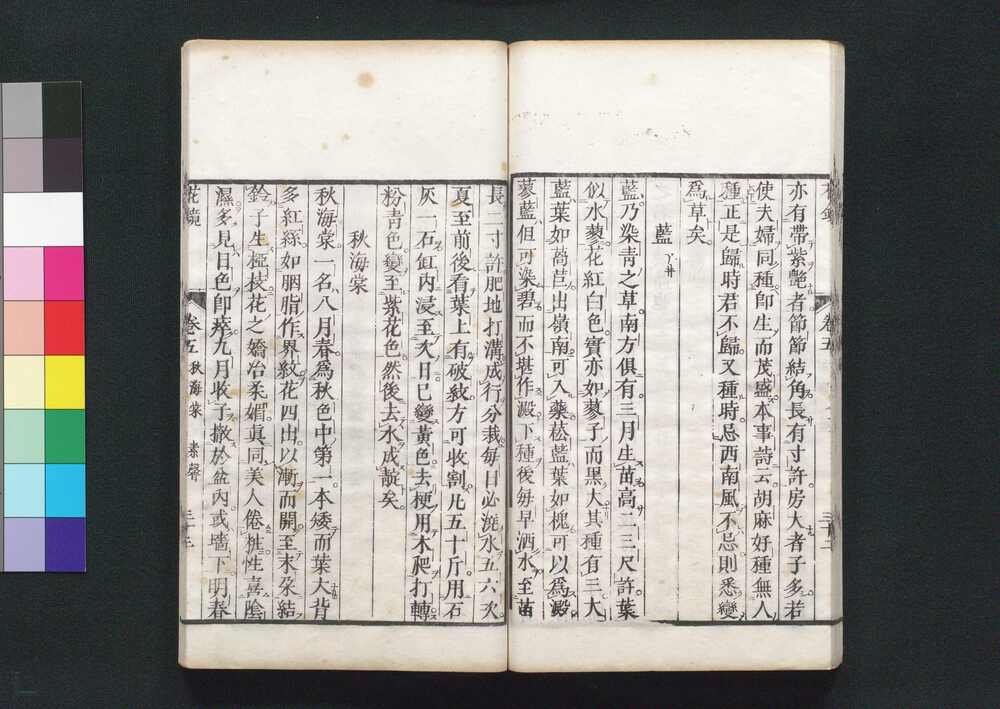 亦有帶紫艷者節節結角長有寸許房大者子多若
使夫婦同種即生而茂盛本事詩云胡麻好種無人
種正是歸時君不歸又種時忌西南風不忌則悉變
為草矣。
藍
藍乃染青之草南方俱有三月生苗高二三尺許葉
似水蓼花紅白色實亦如蓼子而黑大其種有三大
藍葉如萵苣出嶺南可入藥菘藍葉如槐可以為澱
蓼藍但可染碧而不堪作澱下種後每早洒水至苗
長二寸許肥地打溝成行分栽每日必澆水五六次
夏至前後看葉上有破紋方可收割凡五十斤用石
灰一石缸內浸至次日已變黃色去梗用木爬打轉
粉青色變至紫花色然後去水成靛矣。
秋海棠
秋海棠一名八月春為秋色中第一本矮而葉大背
多紅絲如胭脂作界紋花四出以漸而開至末朶結
鈴子生椏枝花之嬌冶柔媚真同美人倦粧性喜陰
濕多見日色即瘁九月收子撒於盆內或墻下明春
花鏡
卷五
秋海棠
素馨
三十三
卷五